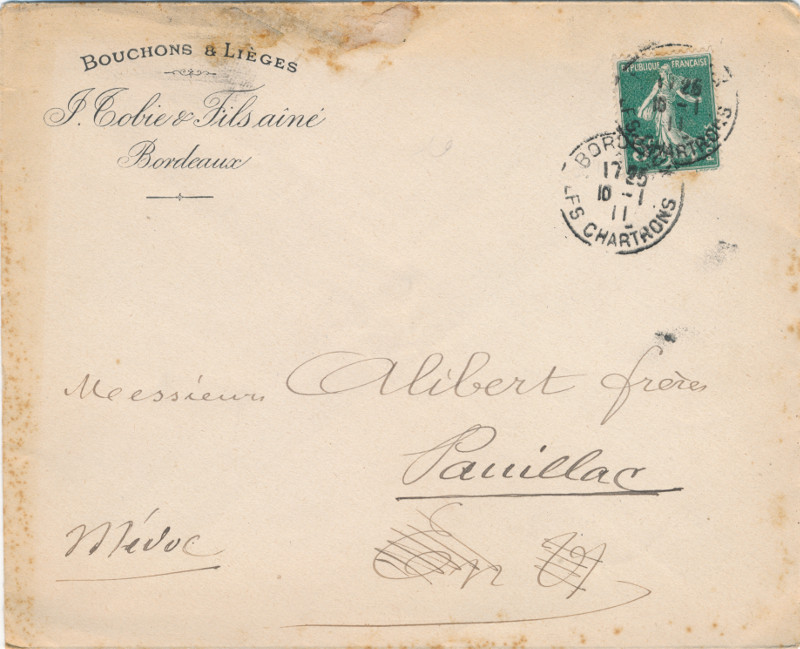 BOUCHONS & LIÈGES
J. Tobie & Fils aîné
Bordeaux
REPUBLIQUE FRANÇAISE
25
10 - 1
CHARTRONS
BORDEAUX
17 25
10 - 1
11
LES CHARTRONS
Messieurs Alibert frères
Pauillac
Médoc